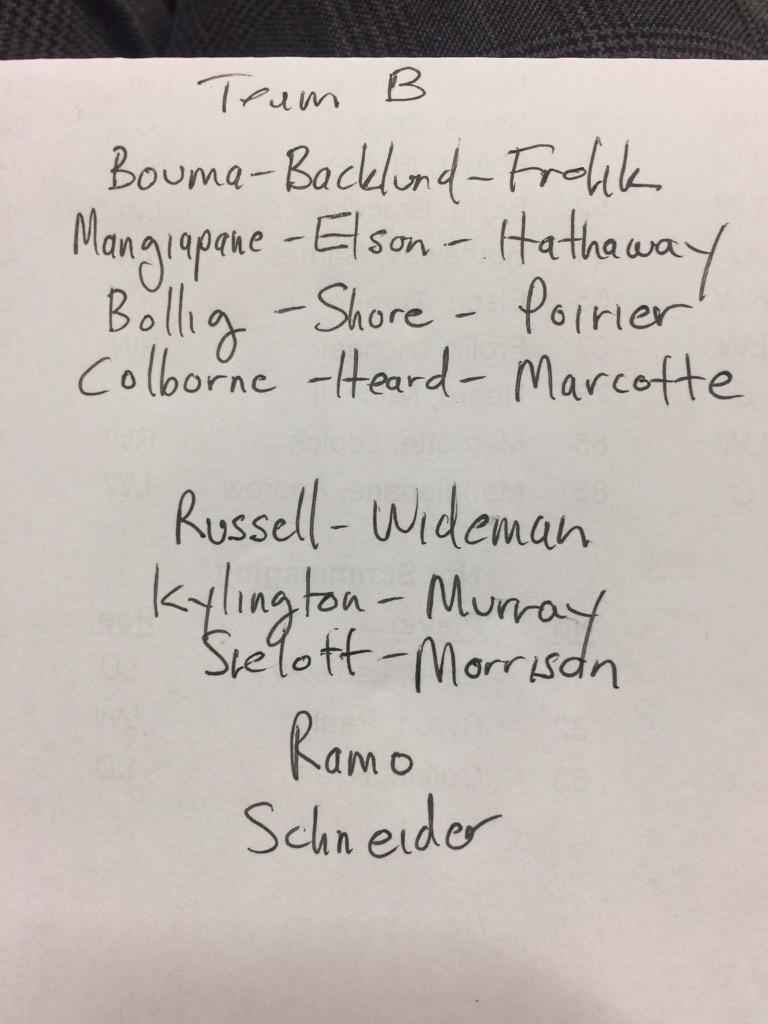 Team B
Bouma-Backlund-Frolik
Mangiapane-Elson-Hathaway
Bollig-Shore-Poirier
Colborne-Heard-Marcotte
Russell-Wideman
Kylington-Murray
Sieloff-Morrison
Ramo
Schneider